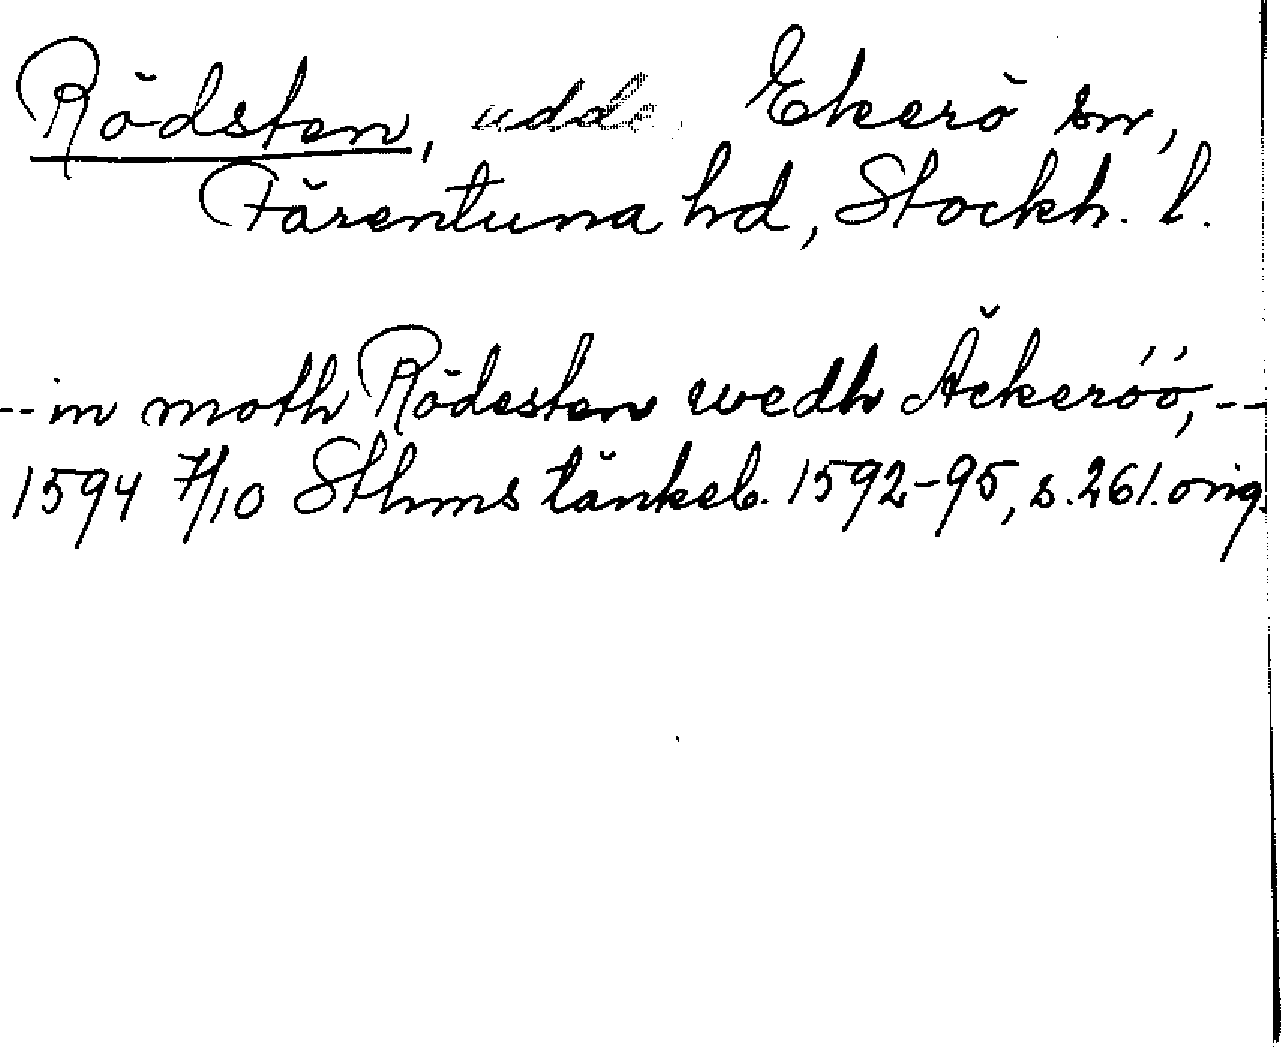 Rödsten, udde Ekerö sn,
Färentuna hd, Stockh. l.
-- in moth Rödesten wedh Äckeróó, --
1594 7/10 Sthms tänkeb. 1592-95, s. 261. orig.